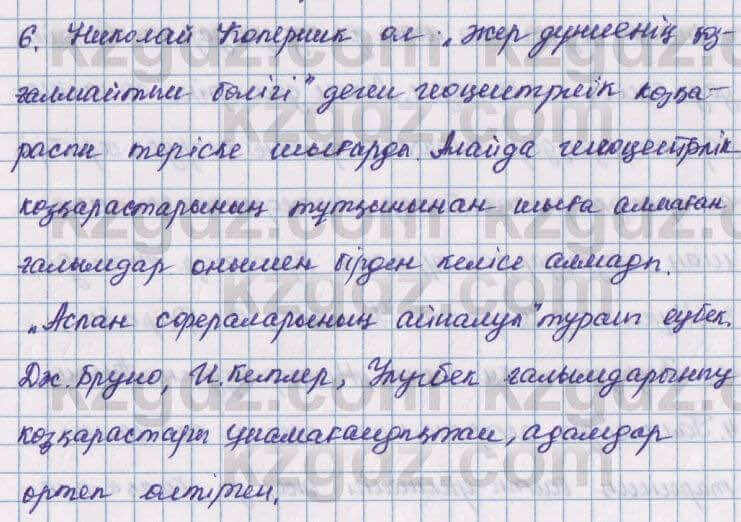 6. Николай Коперник ол „Жер дүниенің қоз-
ғалмайтын бөлігі" деген геоцентрлік козқа-
расты теріске шығарды. Алайда гелиоцентрлік
козқарастарының тұтқынынан шыға алмаған
ғалымдар онымен бірден келісе алмады.
„Аспан сфераларының айналуы" туралы еңбек.
Дж. Бруно, И. Кеплер, Ұлугбек ғалымдарының
козқарастары ұнамағандықтан, адамдар
өртеп өлтірген.
kzgdz.com